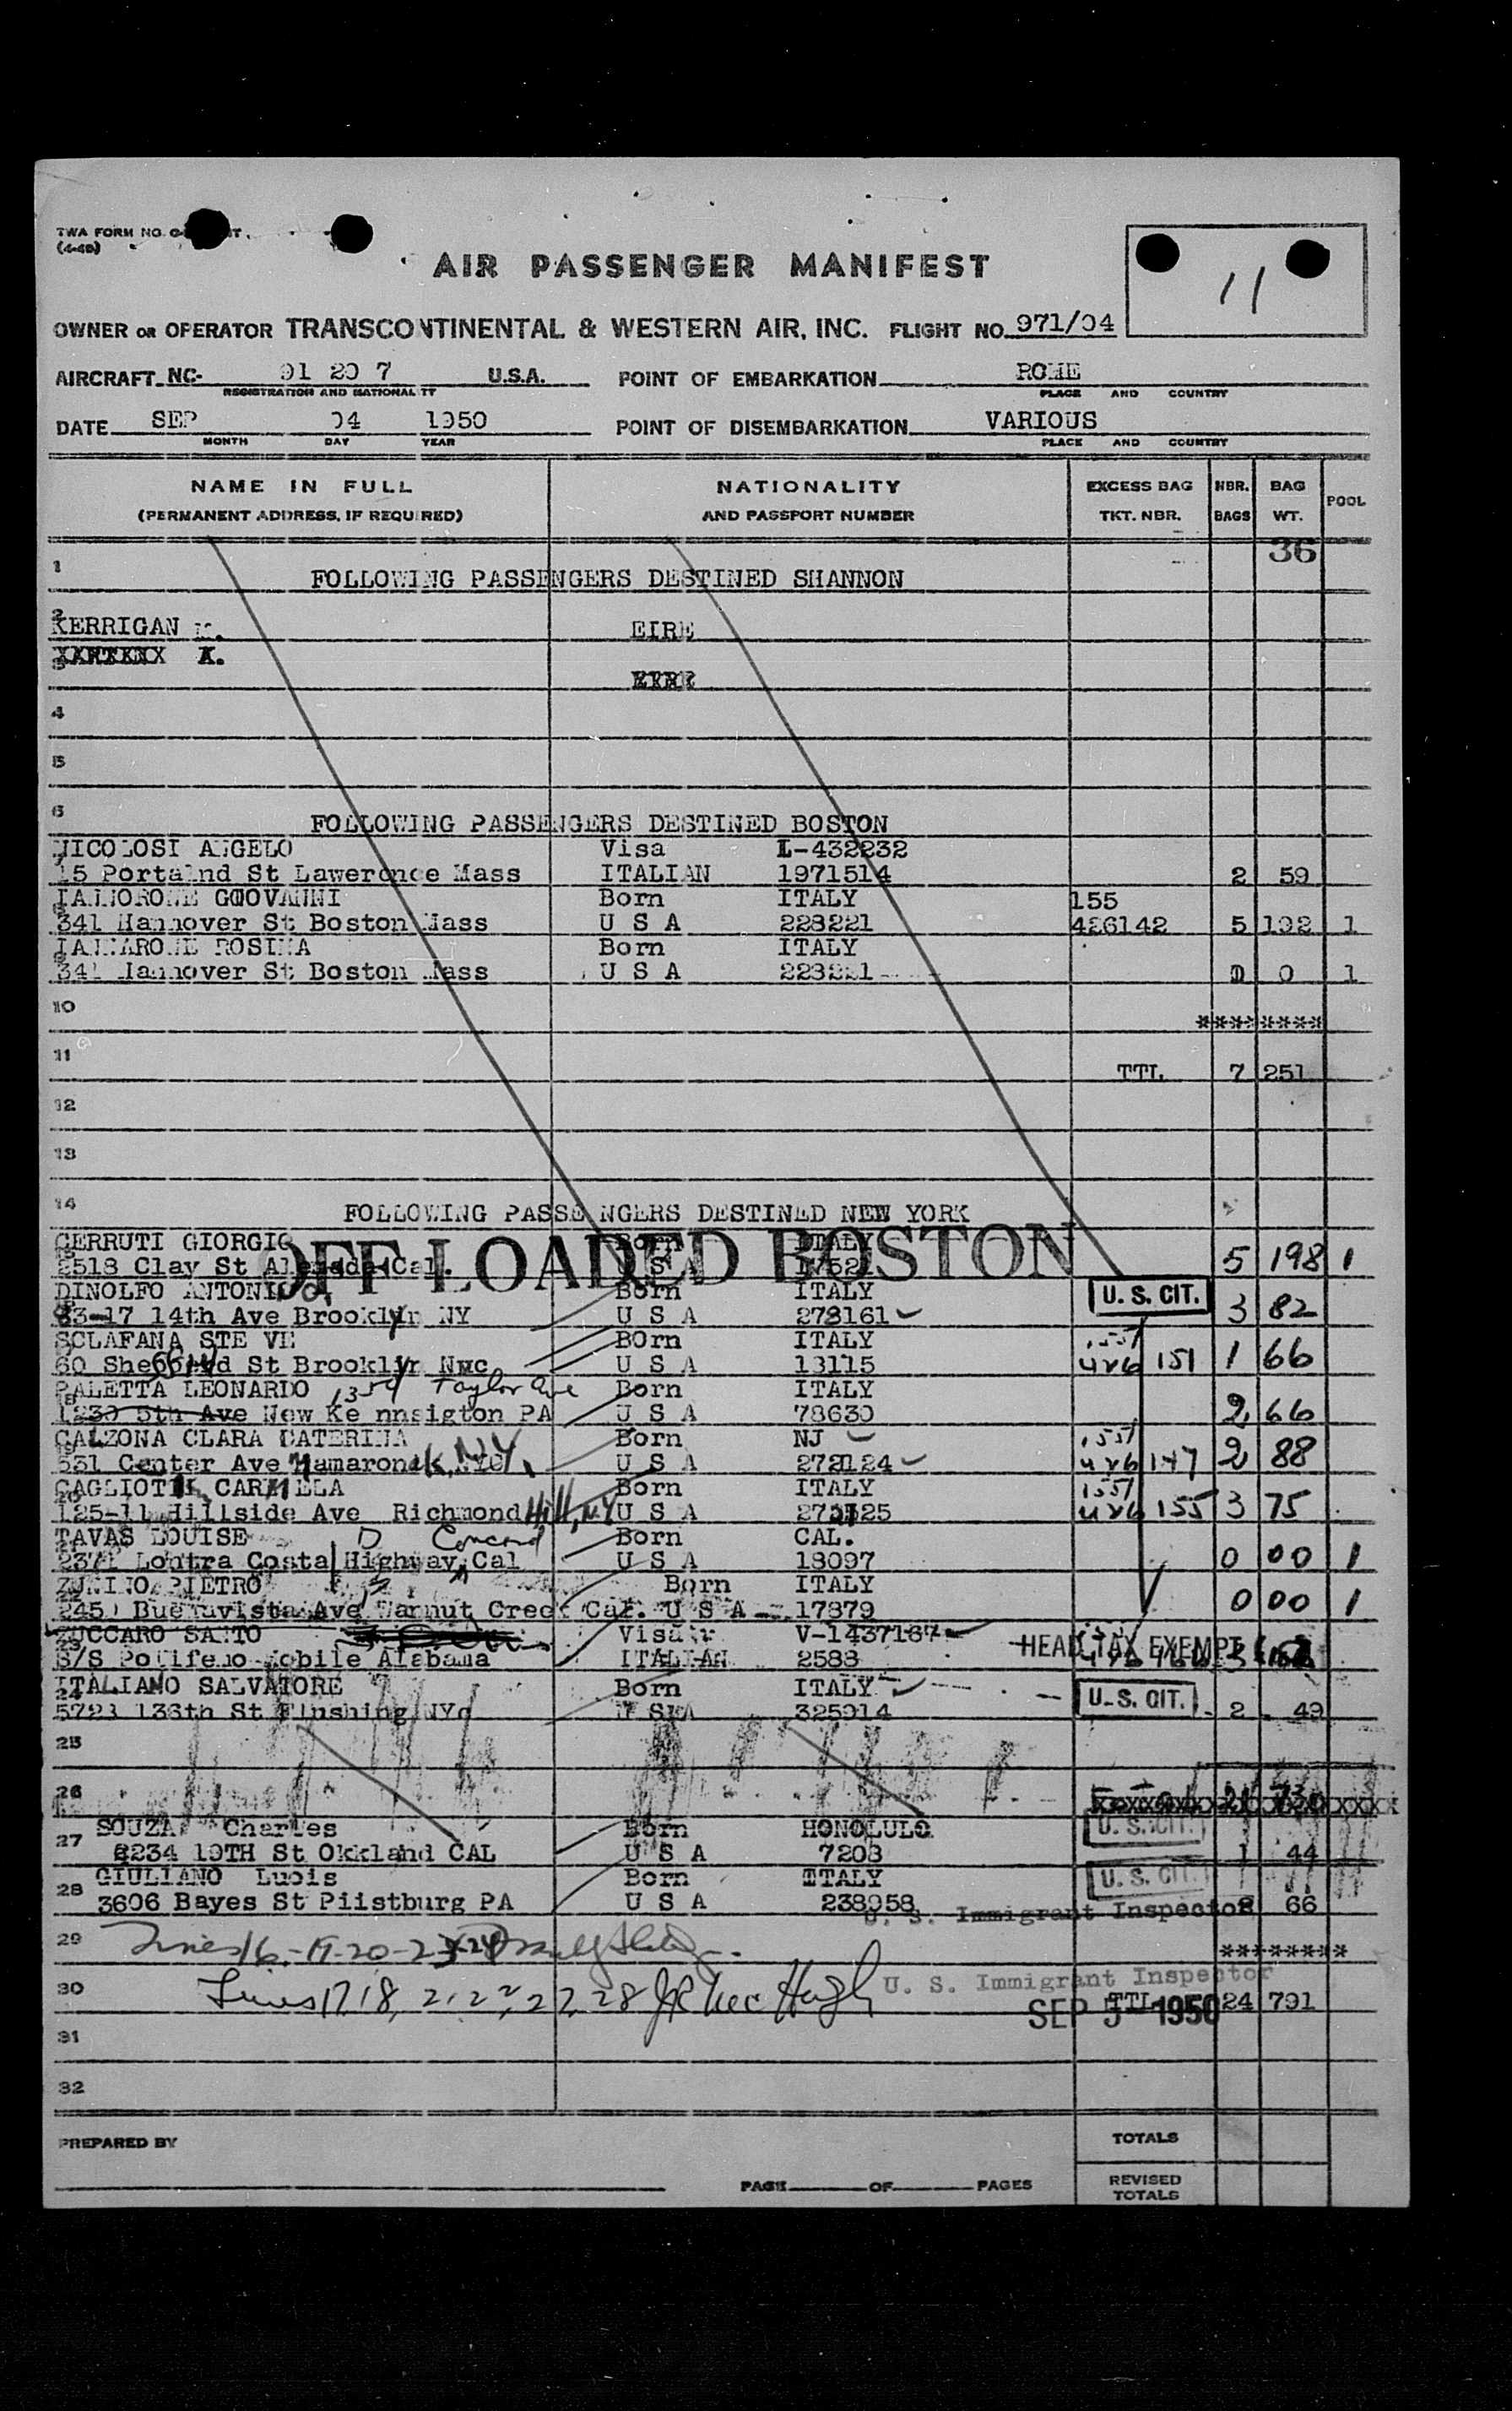 TWA FORM NO.
(4-49)
AIR PASSENGER MANIFEST
11
OWNER OR OPERATOR TRANSCONTINENTAL & WESTERN AIR, INC. FLIGHT NO. 971/04
AIRCRAFT NC- 91 20 7 U.S.A. POINT OF EMBARKATION ROME
REGISTRATION AND NATIONALITY PLACE AND COUNTRY
DATE SEP 04 1950 POINT OF DISEMBARKATION VARIOUS
MONTH DAY YEAR PLACE AND COUNTRY
NAME IN FULL NATIONALITY EXCESS BAG NBR. BAG POOL
(PERMANENT ADDRESS, IF REQUIRED) AND PASSPORT NUMBER TKT. NBR. BAGS WT.
36
1 FOLLOWING PASSENGERS DESTINED SHANNON
2 KERRIGAN EIRE
3
4
5
6 FOLLOWING PASSENGERS DESTINED BOSTON
NICOLOSI ANGELO Visa I-432232
15 Portalnd St Lawerence Mass ITALIAN 1971514 2 59
GIOVANNI Born ITALY 155
341 Hannover St Boston Mass U S A 223221 426142 5 192 1
ROSINA Born ITALY
341 Hannover St Boston Mass U S A 0 0 1
10 ********
11 TTL 7 251
12
13
14 FOLLOWING PASSENGERS DESTINED NEW YORK
OFF LOADED BOSTON
CERRUTI GIORGIO Born ITALY
2518 Clay St Cal. 5 198 1
DINOLFO ANTONINO Born ITALY U. S. CIT.
83-17 14th Ave Brooklyn NY U S A 278161 3 82
SCLAFANA STE VE BOrn ITALY 1557
60 St Brooklyn U S A 13115 426 151 1 66
PALETTA LEONARDO 1354 Taylor Ave Born ITALY
1230 5th Ave New Ke nnsigton PA U S A 78630 2 66
CALZONA CLARA CATERINA Born NJ 1557
531 Center Ave Mamaronek, N.Y. U S A 426 147 2 88
CARMELA Born ITALY 1557
125-11 Hillside Ave Richmond Hill, N.Y U S A 426 155 3 75
TAVAS LOUISE D Concord Born CAL.
Costa Highway Cal U S A 18097 0 00 1
ZUNINO PIETRO Born ITALY
Buenavista Ave Cal. U S A 17879 0 00 1
ZUCCARO SANTO Visa V-1437167 HEAD TAX EXEMPT
S/S Polifemo Mobile Alabama ITALIAN 2588 3
ITALIANO SALVATORE Born ITALY U. S. CIT.
136th St Flushing NYC U S A 325914 2 49
25
26
27 SOUZA Charles Born HONOLULO U. S. CIT.
19TH St Okkland CAL U S A 7208 1 44
28 GIULIANO Luois Born ITALY U. S. CIT.
3606 Bayes St Piistburg PA U S A 238958 66
U. S. Immigrant Inspector
29 Lines 16-19-20-23-24 ********
30 Lines 17 18, 21 22, 27 28
U. S. Immigrant Inspector
TTL 24 791
SEP 5 1950
31
32
PREPARED BY TOTALS
PAGE OF PAGES REVISED TOTALS